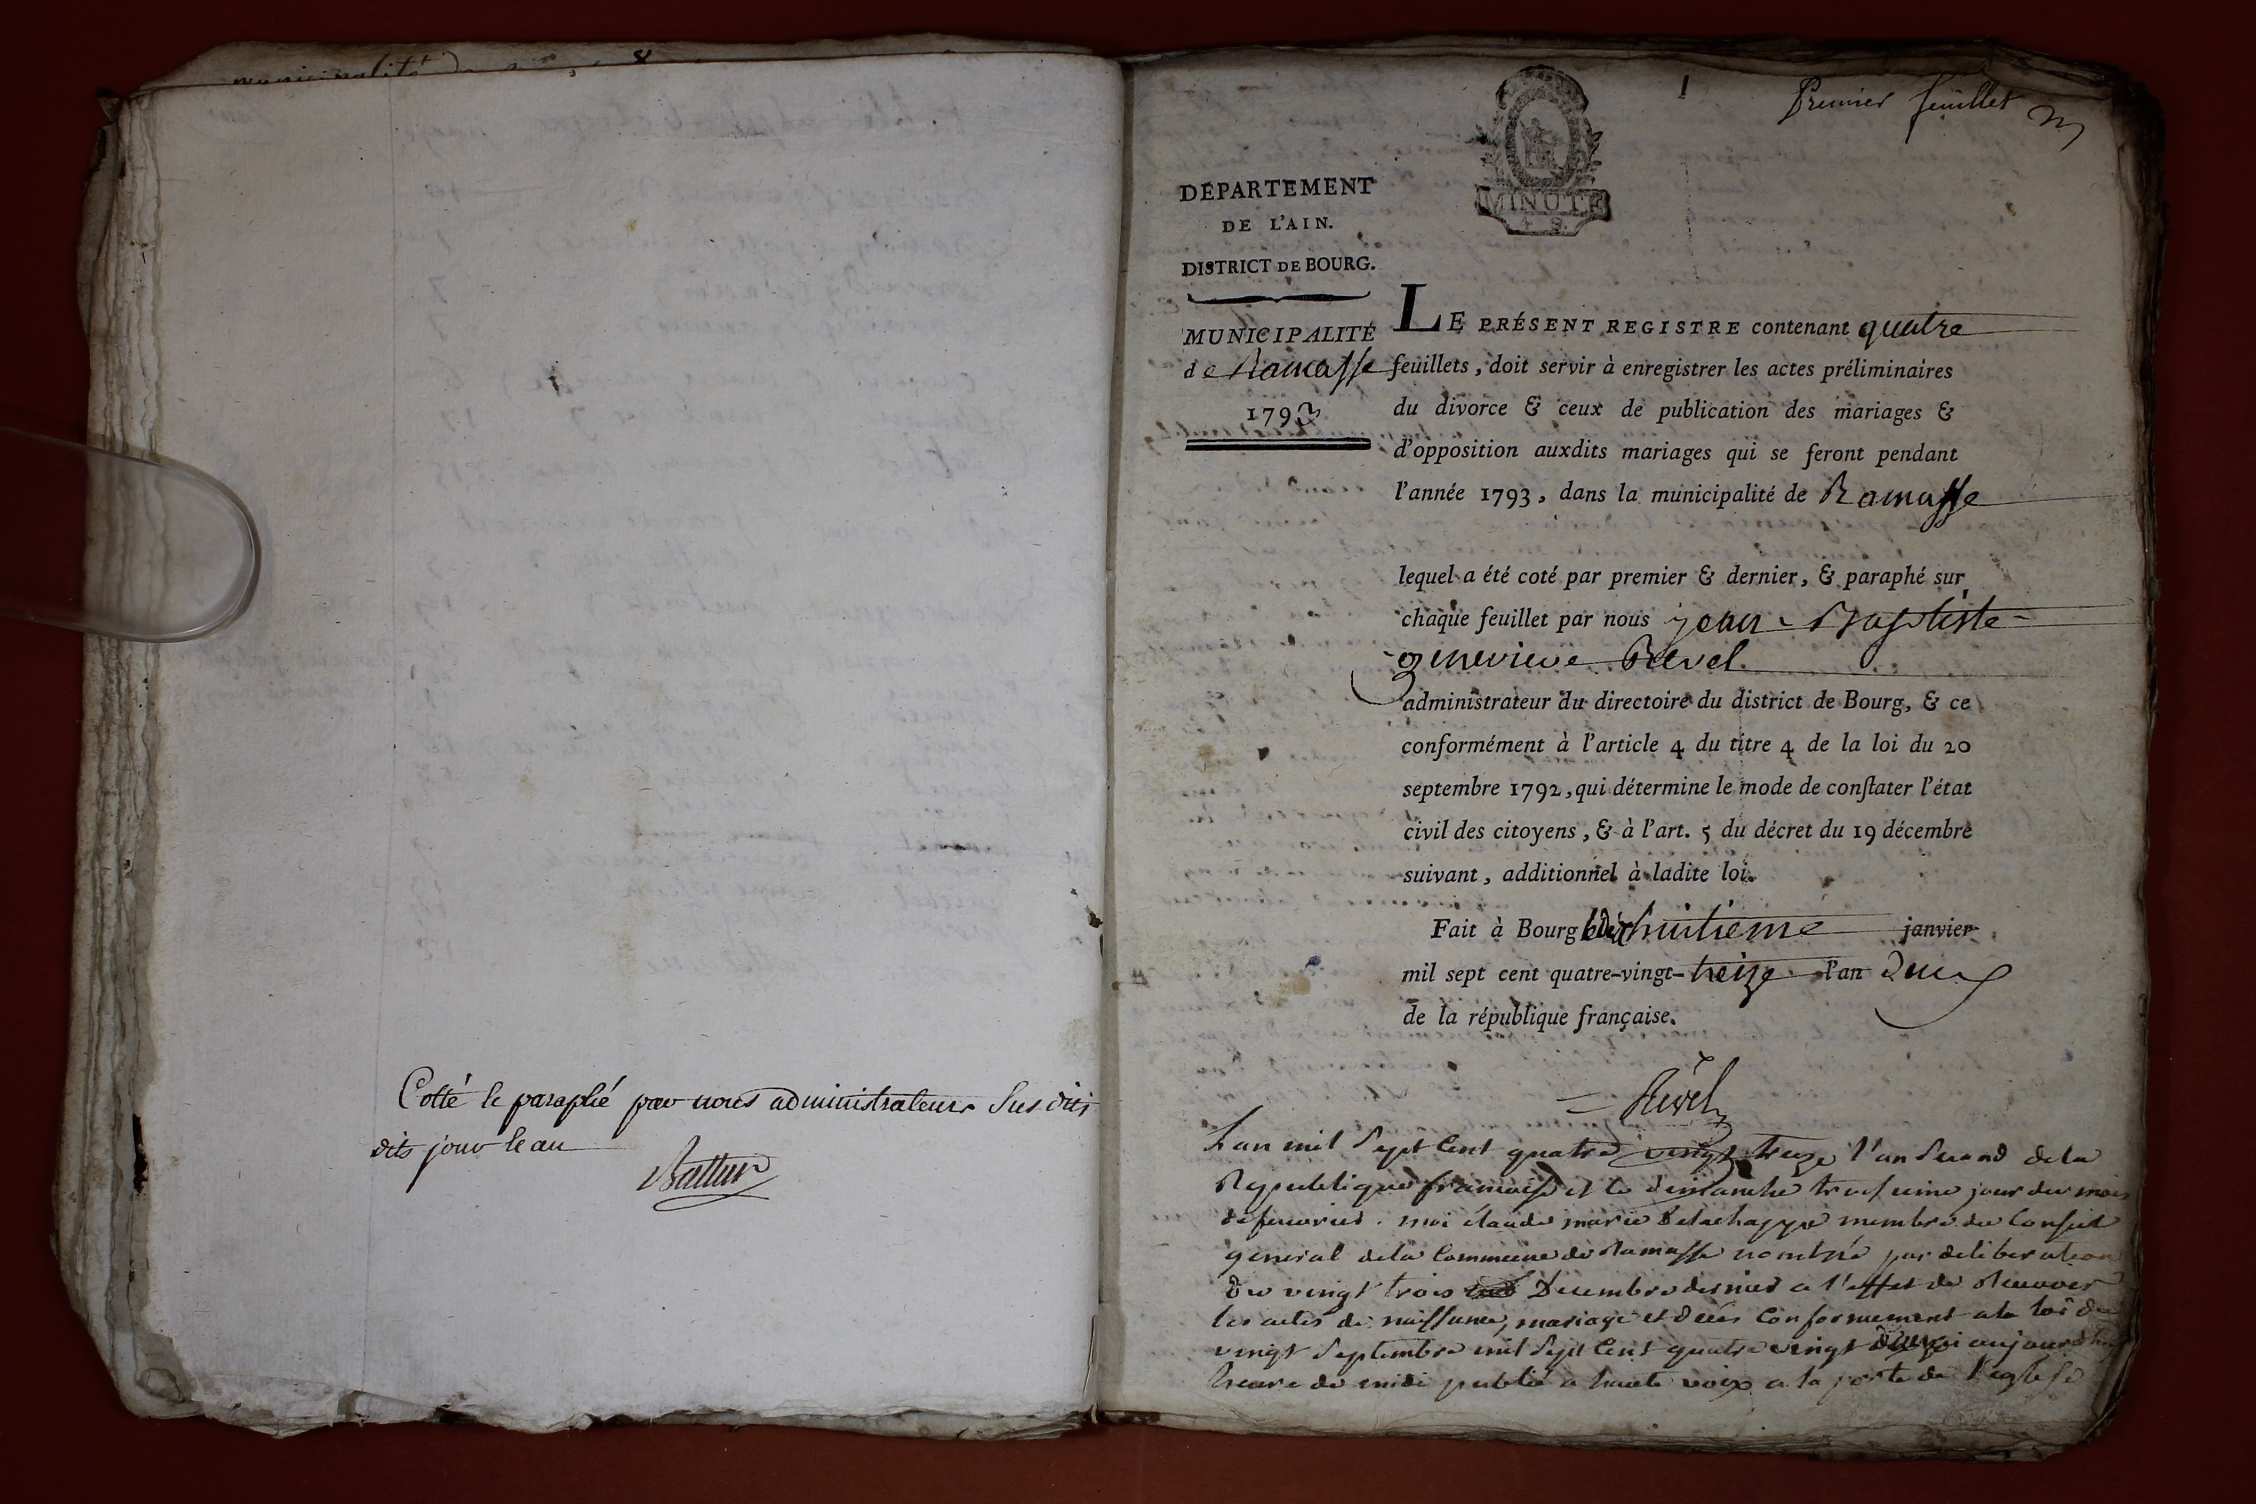 municipalité
Cotté & paraphé par nous administrateur Susdit
dits jour & an
Premier feuillet
1
MINUTE
4 S.
DÉPARTEMENT
DE L'AIN.
DISTRICT DE BOURG.
MUNICIPALITÉ
de Ramasse
1793
LE PRÉSENT REGISTRE contenant quatre
feuillets, doit servir à enregistrer les actes préliminaires
du divorce & ceux de publication des mariages &
d'opposition auxdits mariages qui se feront pendant
l'année 1793, dans la municipalité de Ramasse
lequel a été coté par premier & dernier, & paraphé sur
chaque feuillet par nous jean Baptiste
genevieve Revel
administrateur du directoire du district de Bourg, & ce
conformément à l'article 4 du titre 4 de la loi du 20
septembre 1792, qui détermine le mode de conſtater l'état
civil des citoyens, & à l'art. 5 du décret du 19 décembre
suivant, additionnel à ladite loi.
Fait à Bourg le dix huitieme janvier
mil sept cent quatre-vingt-treize l'an deux
de la république française.
Revel
L'an mil Sept Cent quatre vingt treize l'an Second dela
Republique francoise et le dimanche troisieme jour du mois
de fevrier. moi claude marie Delachappe membre du Conseil
general dela Commune de Ramasse nommé par deliberation
du vingt trois Decembre dernier a l'effet de Recevoir
les actes de naissance, mariage et deces Conformement a la loi du
vingt Septembre mil Sept Cent quatre vingt douze ai aujourdhuy
heure de midi publié a haute voix a la porte de l'eglise